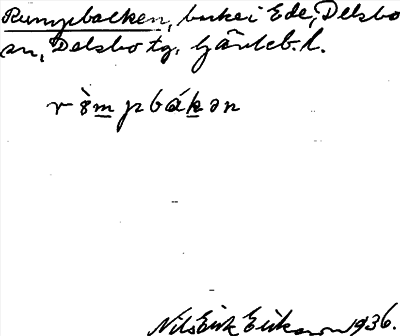 Rumpbacken, backe i Ede, Delsbo
sn, Delsbo tg, Gävleb. l.
Nils Erik Eriksson 1936.